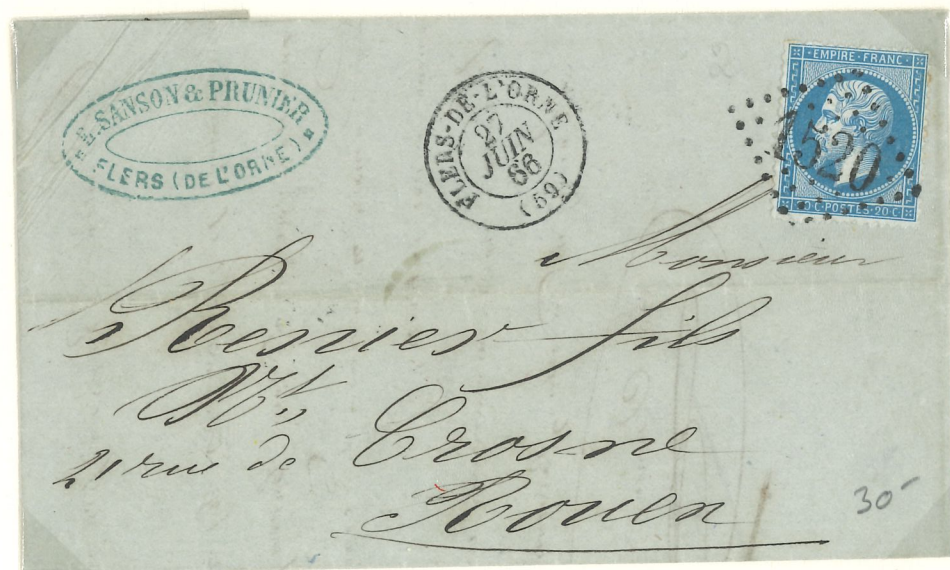 E. SANSON & PRUNIER
FLERS (DE L'ORNE)
FLERS-DE-L'ORNE
27
JUIN
66
(59)
EMPIRE FRANC
1520
20 C POSTES 20 C
Monsieur
Resnier fils
Mt
21 rue de Crosne
Rouen
30-